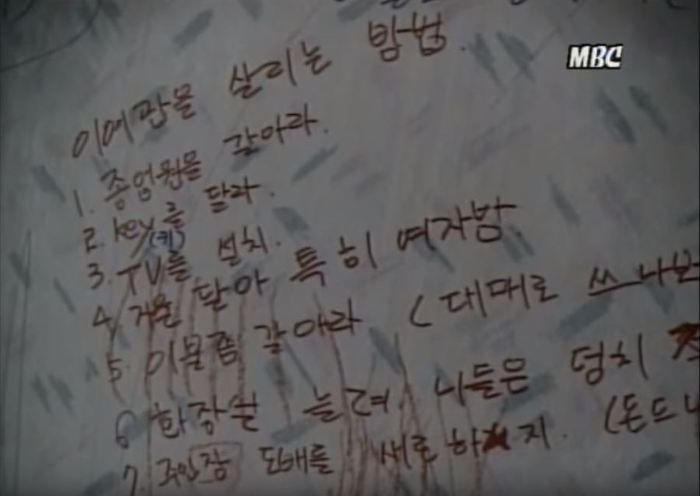 MBC
이여관을 살리는 방법.
1. 종업원을 갈아라.
2. key를 달라.
(키)
3. TV를 설치.
4. 거울 달아 특히 여자방.
5. 이불좀 갈아라 (대매로 쓰나보
6 화장실 늘려. 니들은 덩치
7. 주인장 도배를 새로 하지. (돈드